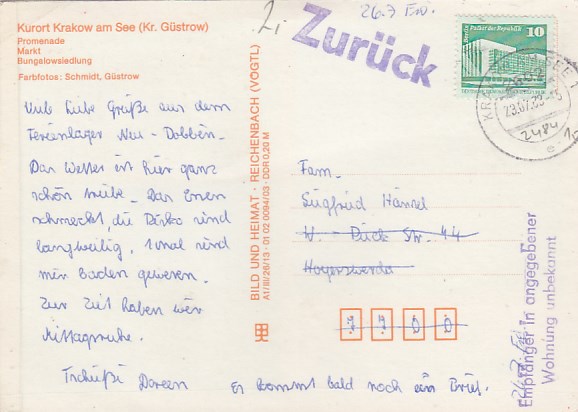 Kurort Krakow am See (Kr. Güstrow)
Promenade
Markt
Bungalowsiedlung
Farbfotos: Schmidt, Güstrow
2i
Zurück
26.7
Berlin, Palast der Republik
10
23.07.89
2484
Viele liebe Grüße aus dem
Ferienlager Neu-Dobbin.
Das Wetter ist hier ganz
schön trübe. Das Essen
schmeckt, die Diskos sind
langweilig. 1 mal sind
wir Baden gewesen.
Zur Zeit haben wir
Mittagsruhe.
Tschüßi Doreen
Es kommt bald noch ein Brief.
BILD UND HEIMAT · REICHENBACH (VOGTL)
A1/III/26/13 · 01 02 0094/03 · DDR 0,20 M
Fam.
Siegfried Hänsel
W. - Pieck Str. 44
Hoyerswerda
7700
Empfänger in angegebener
Wohnung unbekannt
26.7.